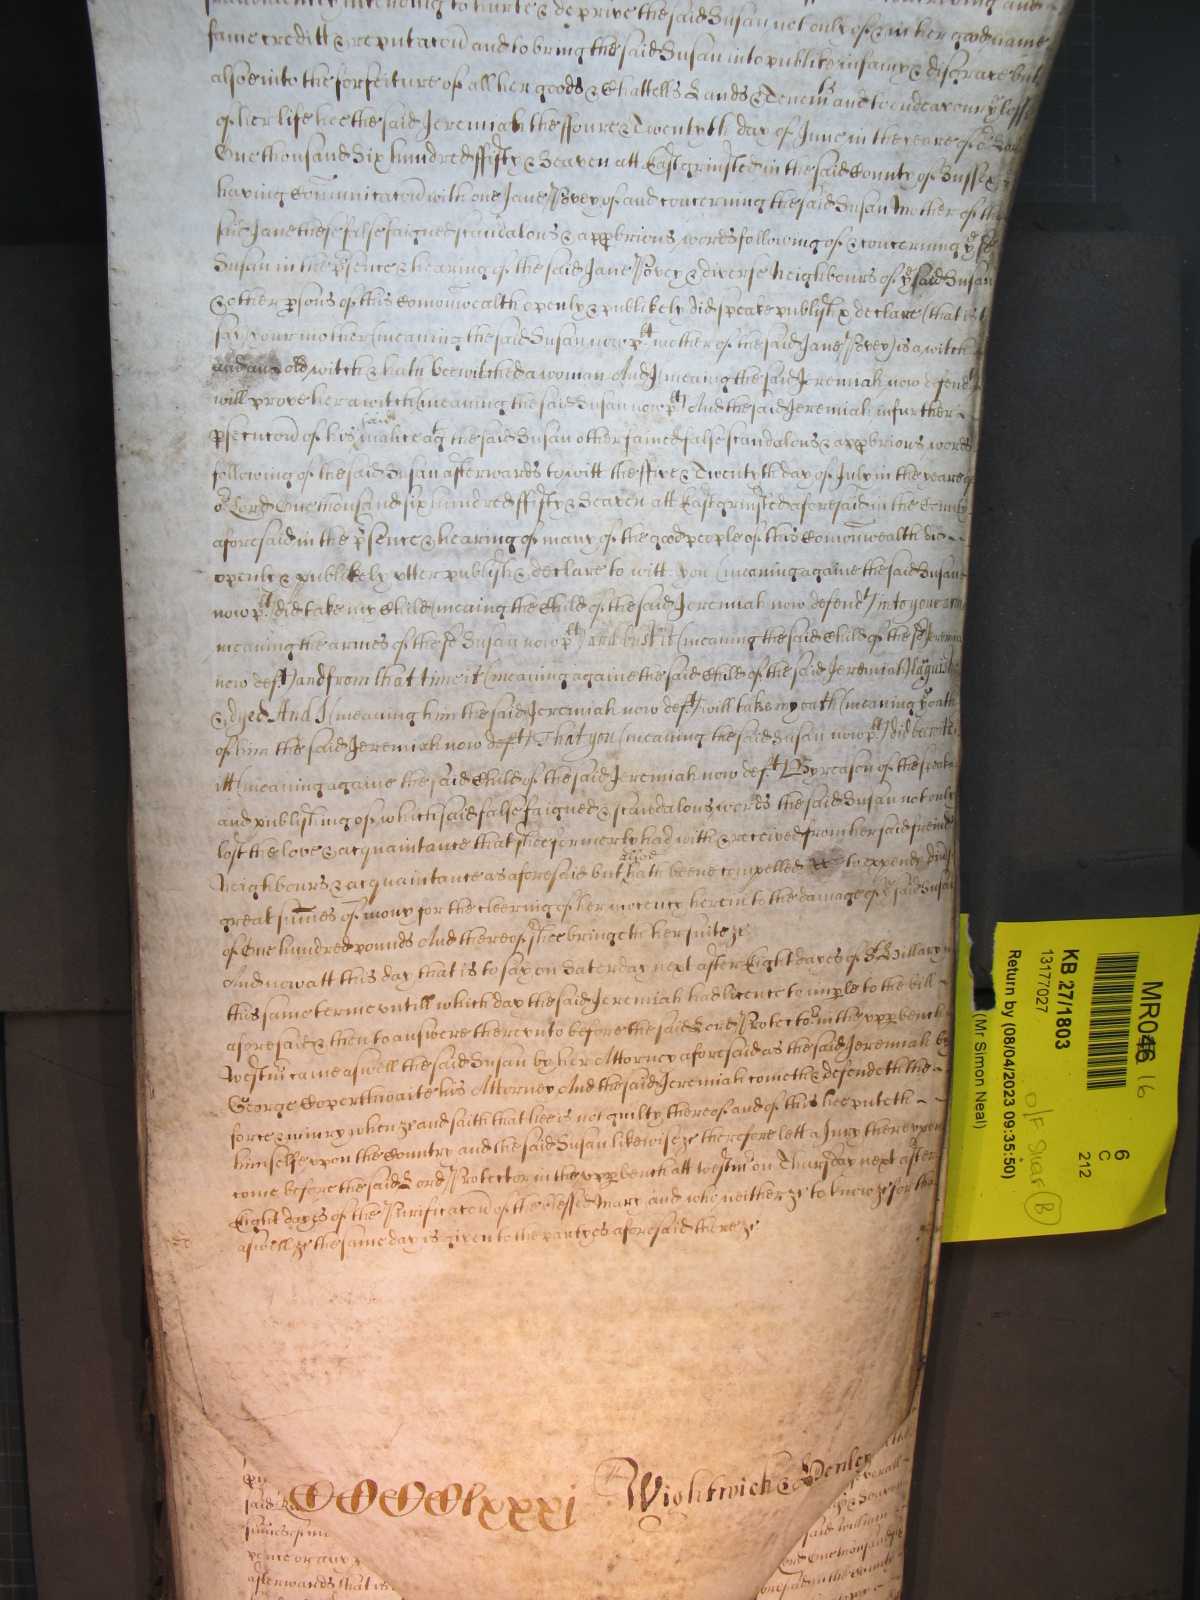 intending to hurte & deprive the said Susan not only of & in her good name
fame creditt & reputacon and to bring the said Susan into publike infamy & disgrace but
alsoe into the forfeiture of all her goods & Chattells Lands & Tenemts and to endeavour ye losse
of her life hee the said Jeremiah the ffoure & Twentyth day of June in the yeare of
One thousand Six hundred ffifty & Seaven att Eastgrinsted in the said County of Sussex
having Comunicacon with one Jane Povey of and concerning the said Susan mother of the
said Jane these false faigned scandalous & approbrious words following of & concerning ye sd
Susan in the psence & hearing of the said Jane Povey & diverse neighbours of ye said Susan
& other psons of this Comonwealth openly & publikely did speake publish & declare (that is to
say) your mother (meaning the said Susan now plt mother of the said Jane Povey) is a witch
and an old witch & hath bewitched a woman And I (meaning the said Jeremiah now defendt)
will prove her a witch (meaning the said Susan now plt) And the said Jeremiah in further
psecucon of his said malice agt the said Susan other fained false scandalous & approbrious words
following of the said Susan afterwards to witt the ffive & Twentyth day of July in the yeare of
or Lord One thousand six hundred ffifty & Seaven att Eastgrinsted aforesaid in the County
aforesaid in the psence & hearing of many of the good people of this Comonwealth did
openly & publikely utter publish & declare to witt you (meaning againe the said Susan
now plt) did take my Child (meaning the Child of the said Jeremiah now defendt) into your arms
meaning the armes of the sd Susan now plt) and bust it (meaning the said Child of the sd Jeremiah
now deft) and from that time it (meaning againe the said Child of the said Jeremiah) laguished
& dyed And I (meaning him the said Jeremiah now deft) will take my oath (meaning ye oath
of him the said Jeremiah now deft) That you (meaning the said Susan now plt) did bewitch
itt (meaning againe the said Child of the said Jeremiah now deft) By reason of the speaking
and publishing of which said false faigned & scandalous words the said Susan not only
lost the love & acquaintance that shee formerly had with & received from her said freinds
Neighbours & acquaintance as aforesaid but hath alsoe beene compelled to expend divse
great sumes of mony for the cleering of her inocency herein to the damage of ye said Susan
of One hundred pounds And thereof shee bringeth her suite &c
And now att this day that is to say on Saterday next after Eight dayes of St Hillary in
this same terme untill which day the said Jeremiah had licence to imple to the bill
aforesaid & then to answere thereunto before the said Lord Protector in the upper bench
Westmr came aswell the said Susan by her Attorney aforesaid as the said Jeremiah by
George Cooperthwaite his Attorney And the said Jeremiah cometh & defendeth the
force & iniury when &c and saith that hee is not guilty thereof and of this hee puteth
himselfe upon the Country and the said Susan likewise &c therefore lett a Jury thereupon
come before the said Lord Protector in the upper bench att Westmr on Thursday next after
Eight dayes of the Purificacon of the blessed Mary and who neither &c to know &c for that
aswell &c the same day is given to the partyes aforesaid there &c
CCCClxxxi Wightwick & Henley
said
afterwards that is
said William
MR046 16
KB 27/1803
13177027
Return by (08/04/2023 09:35:50)
(Mr Simon Neal)
6
C
212
O/F Shelf B